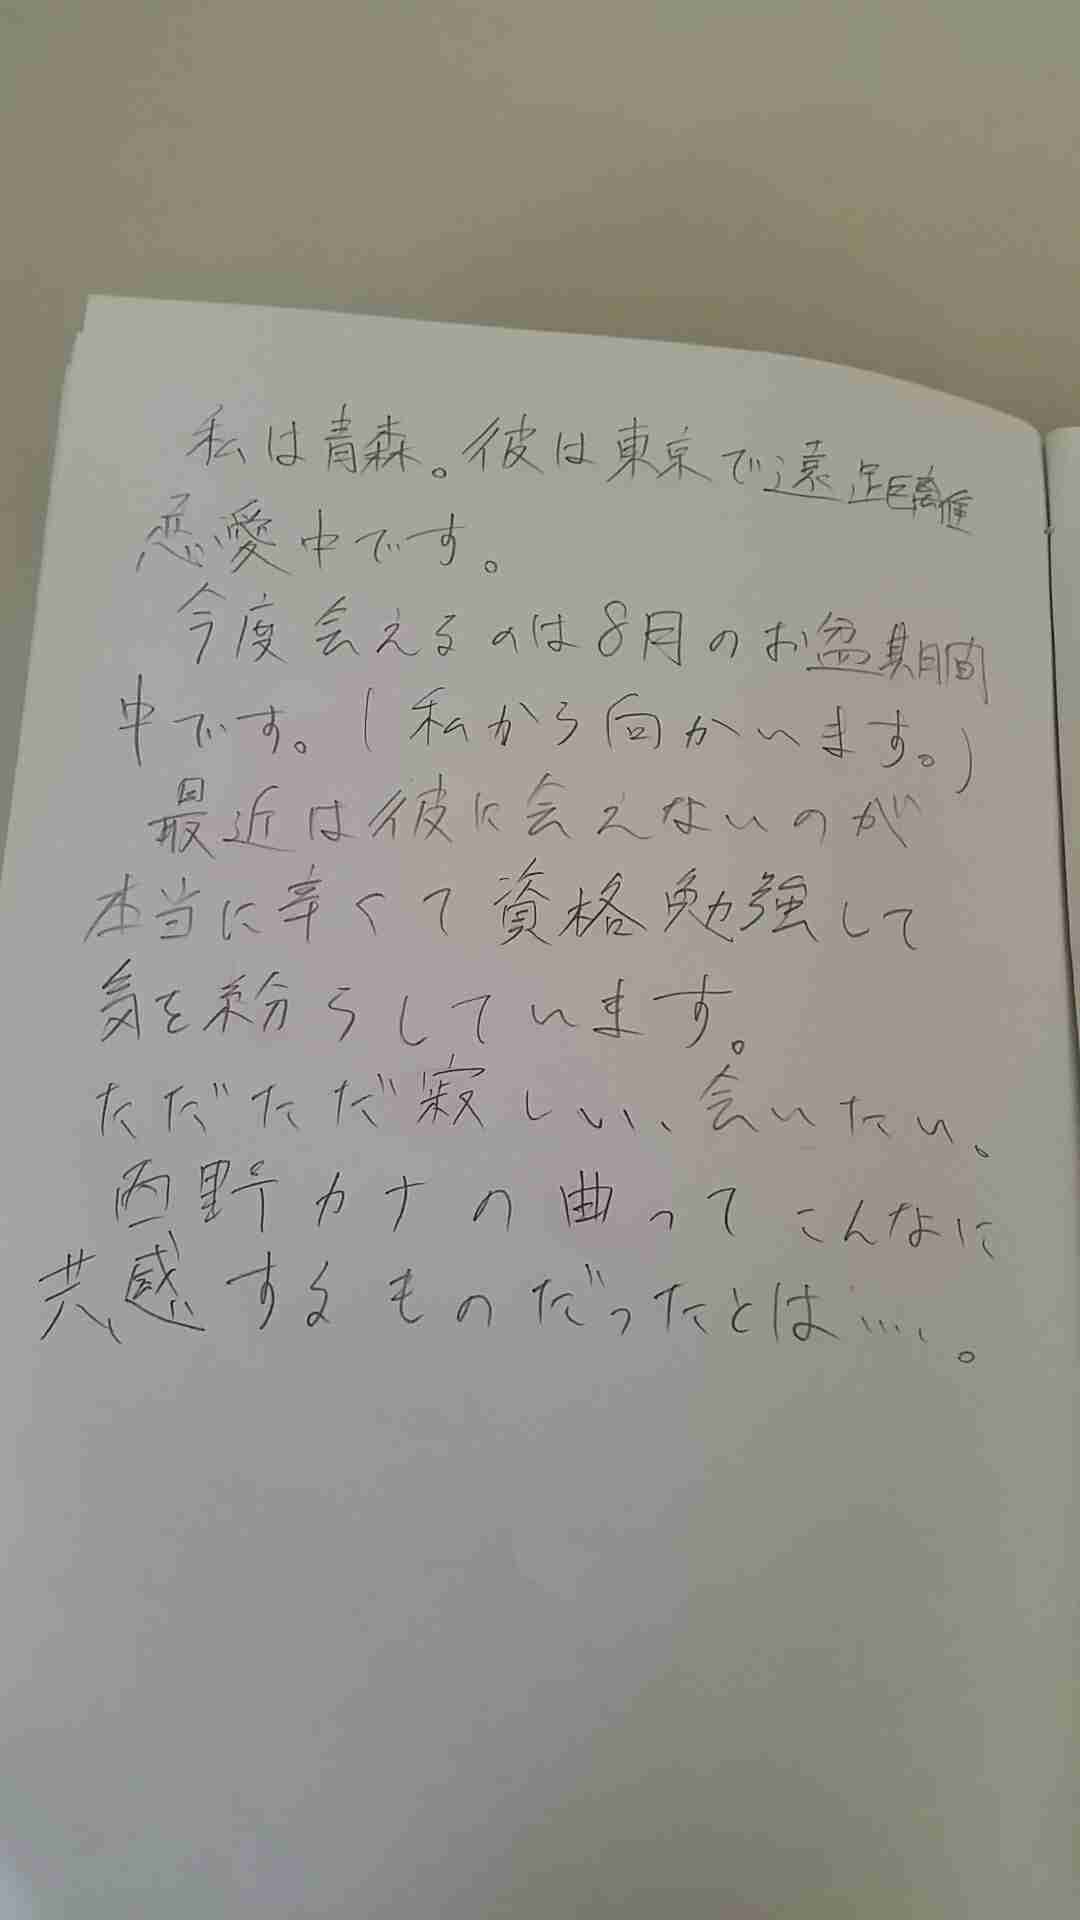 私は青森。彼は東京で遠距離
恋愛中です。
今度会えるのは8月のお盆期間
中です。(私から向かいます。)
最近は彼に会えないのが
本当に辛くて資格勉強して
気を紛らしています。
ただただ寂しい、会いたい、
西野カナの曲ってこんなに
共感するものだったとは…。